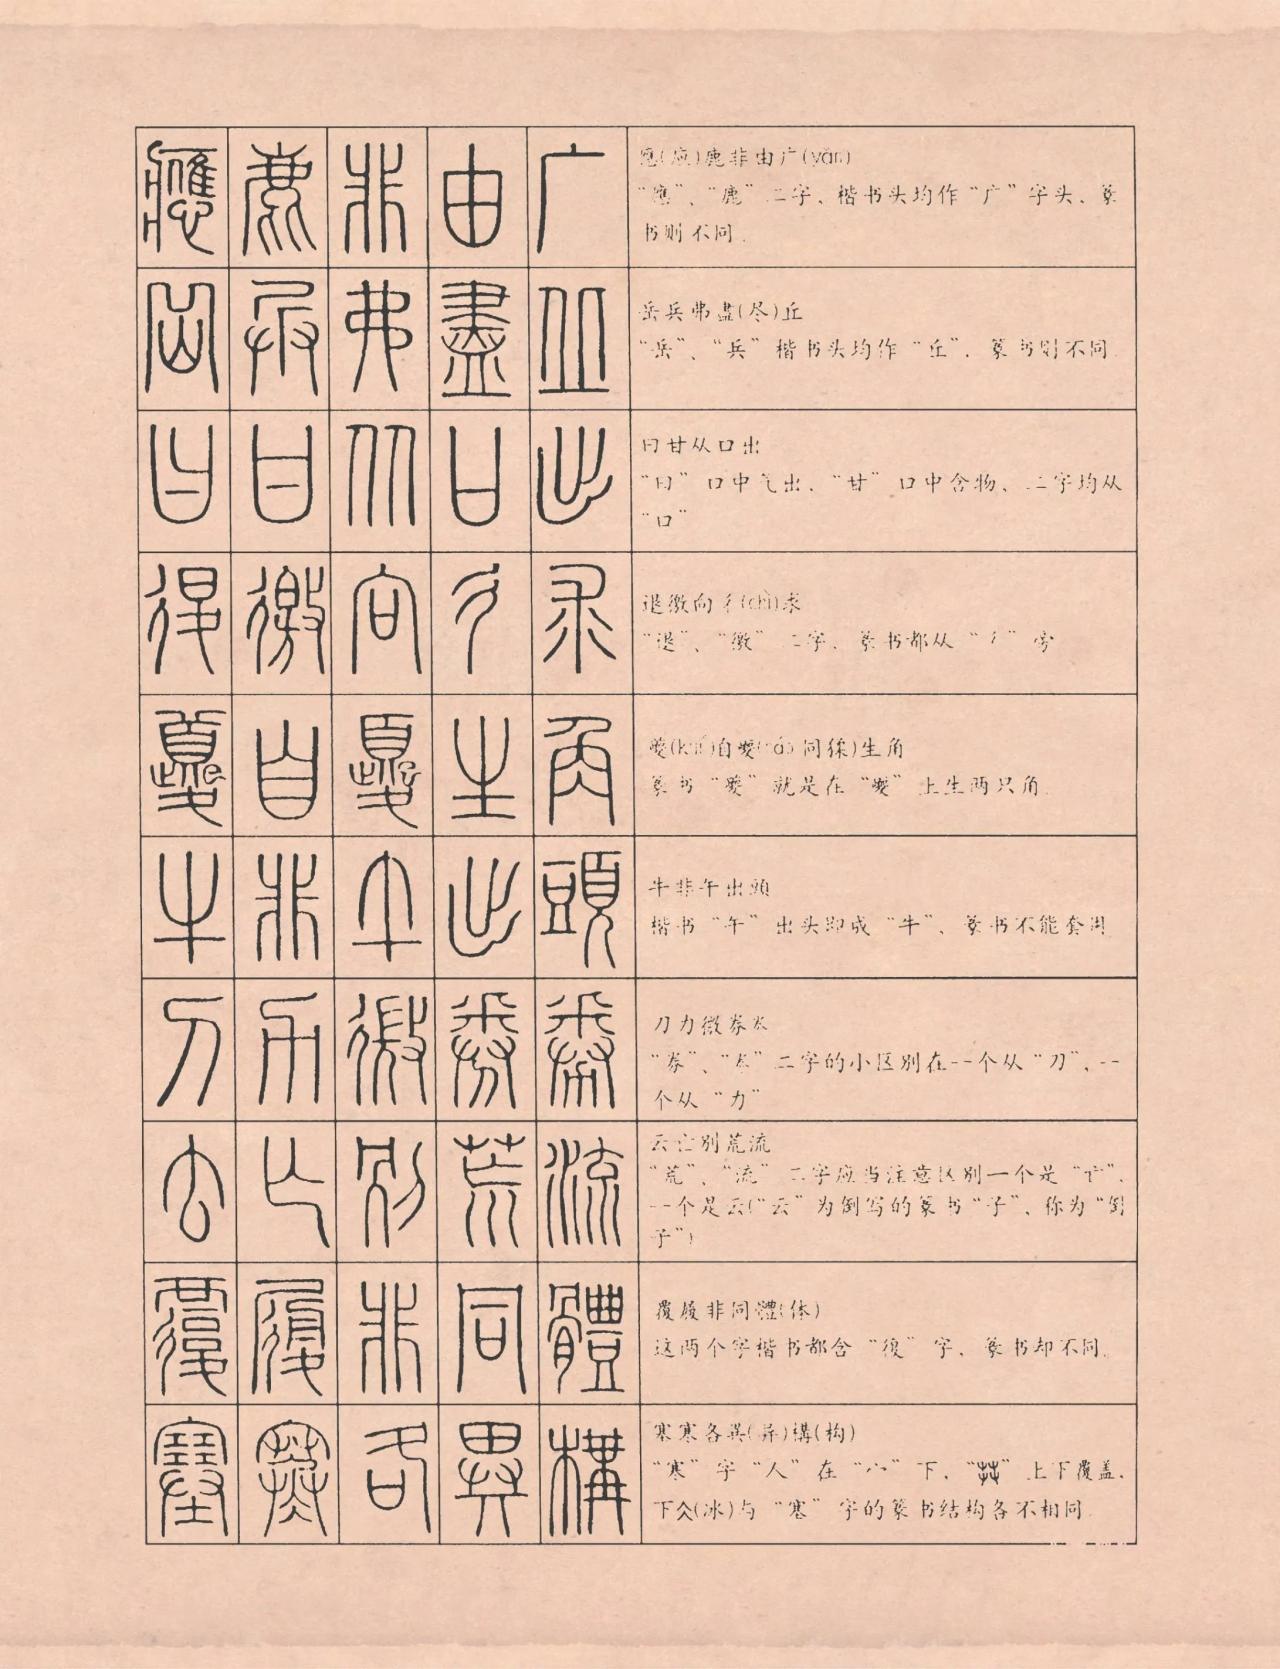 應鹿非由广
應(应)鹿非由广(yǎn)
“應”、“鹿”二字、楷书头均作“广”字头、篆
书则不同.
岳兵弗盡丘
岳兵弗盡(尽)丘
“岳”、“兵”楷书头均作“丘”.篆书则不同.
曰甘从口出
曰甘从口出
“曰”口中气出、“甘”口中含物、二字均从
“口”
退徼向彳求
退徼向彳(chì)求
“退”、“徼”二字、篆书都从“彳”旁
夔自夒生角
夔(kuí)自夒(náo 同猱)生角
篆书“夔”就是在“夒”上生两只角.
牛非午出頭
牛非午出頭
楷书“午”出头即成“牛”、篆书不能套用
刀力微券
刀力微券
“券”、 二字的小区别在一个从“刀”、一
个从“力”
亡别荒流
云亡别荒流
“荒”、“流”二字应当注意区别一个是“亡”、
一个是云(“云”为倒写的篆书“子”、称为“倒
子”)
覆履非同體
覆履非同體(体)
这两个字楷书都含“復”字、篆书却不同.
塞寒各異構
塞寒各異(异)構(构)
“寒”字“人”在“宀”下、“茻”上下覆盖.
下仌(冰)与“塞”字的篆书结构各不相同.